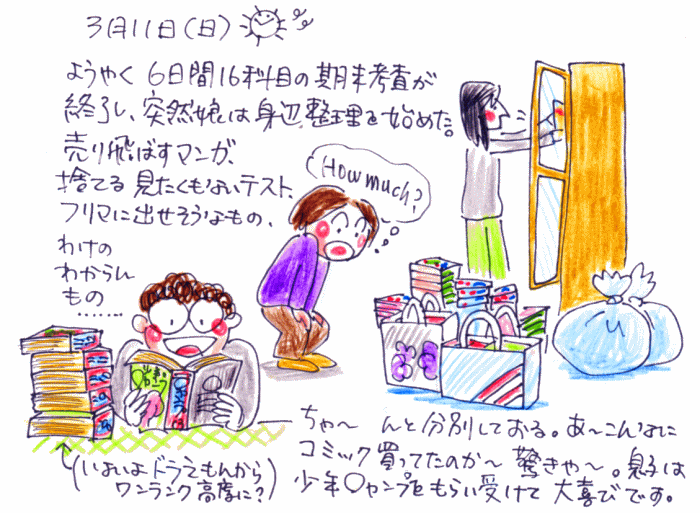 3月11日(日)
ようやく 6日間16科目の期末考査が
終了し、突然娘は身辺整理を始めた。
売り飛ばすマンガ、
捨てる 見たくもないテスト、
フリマに出せそうなもの、
わけの
わからん
もの
………
How much?
ちゃ〜んと分別しておる。あ〜こんなに
コミック買ってたのか〜 驚きや〜。息子は
少年○ャンプをもらい受けて 大喜びです。
(いよいよドラえもんから
ワンランク高度に?)